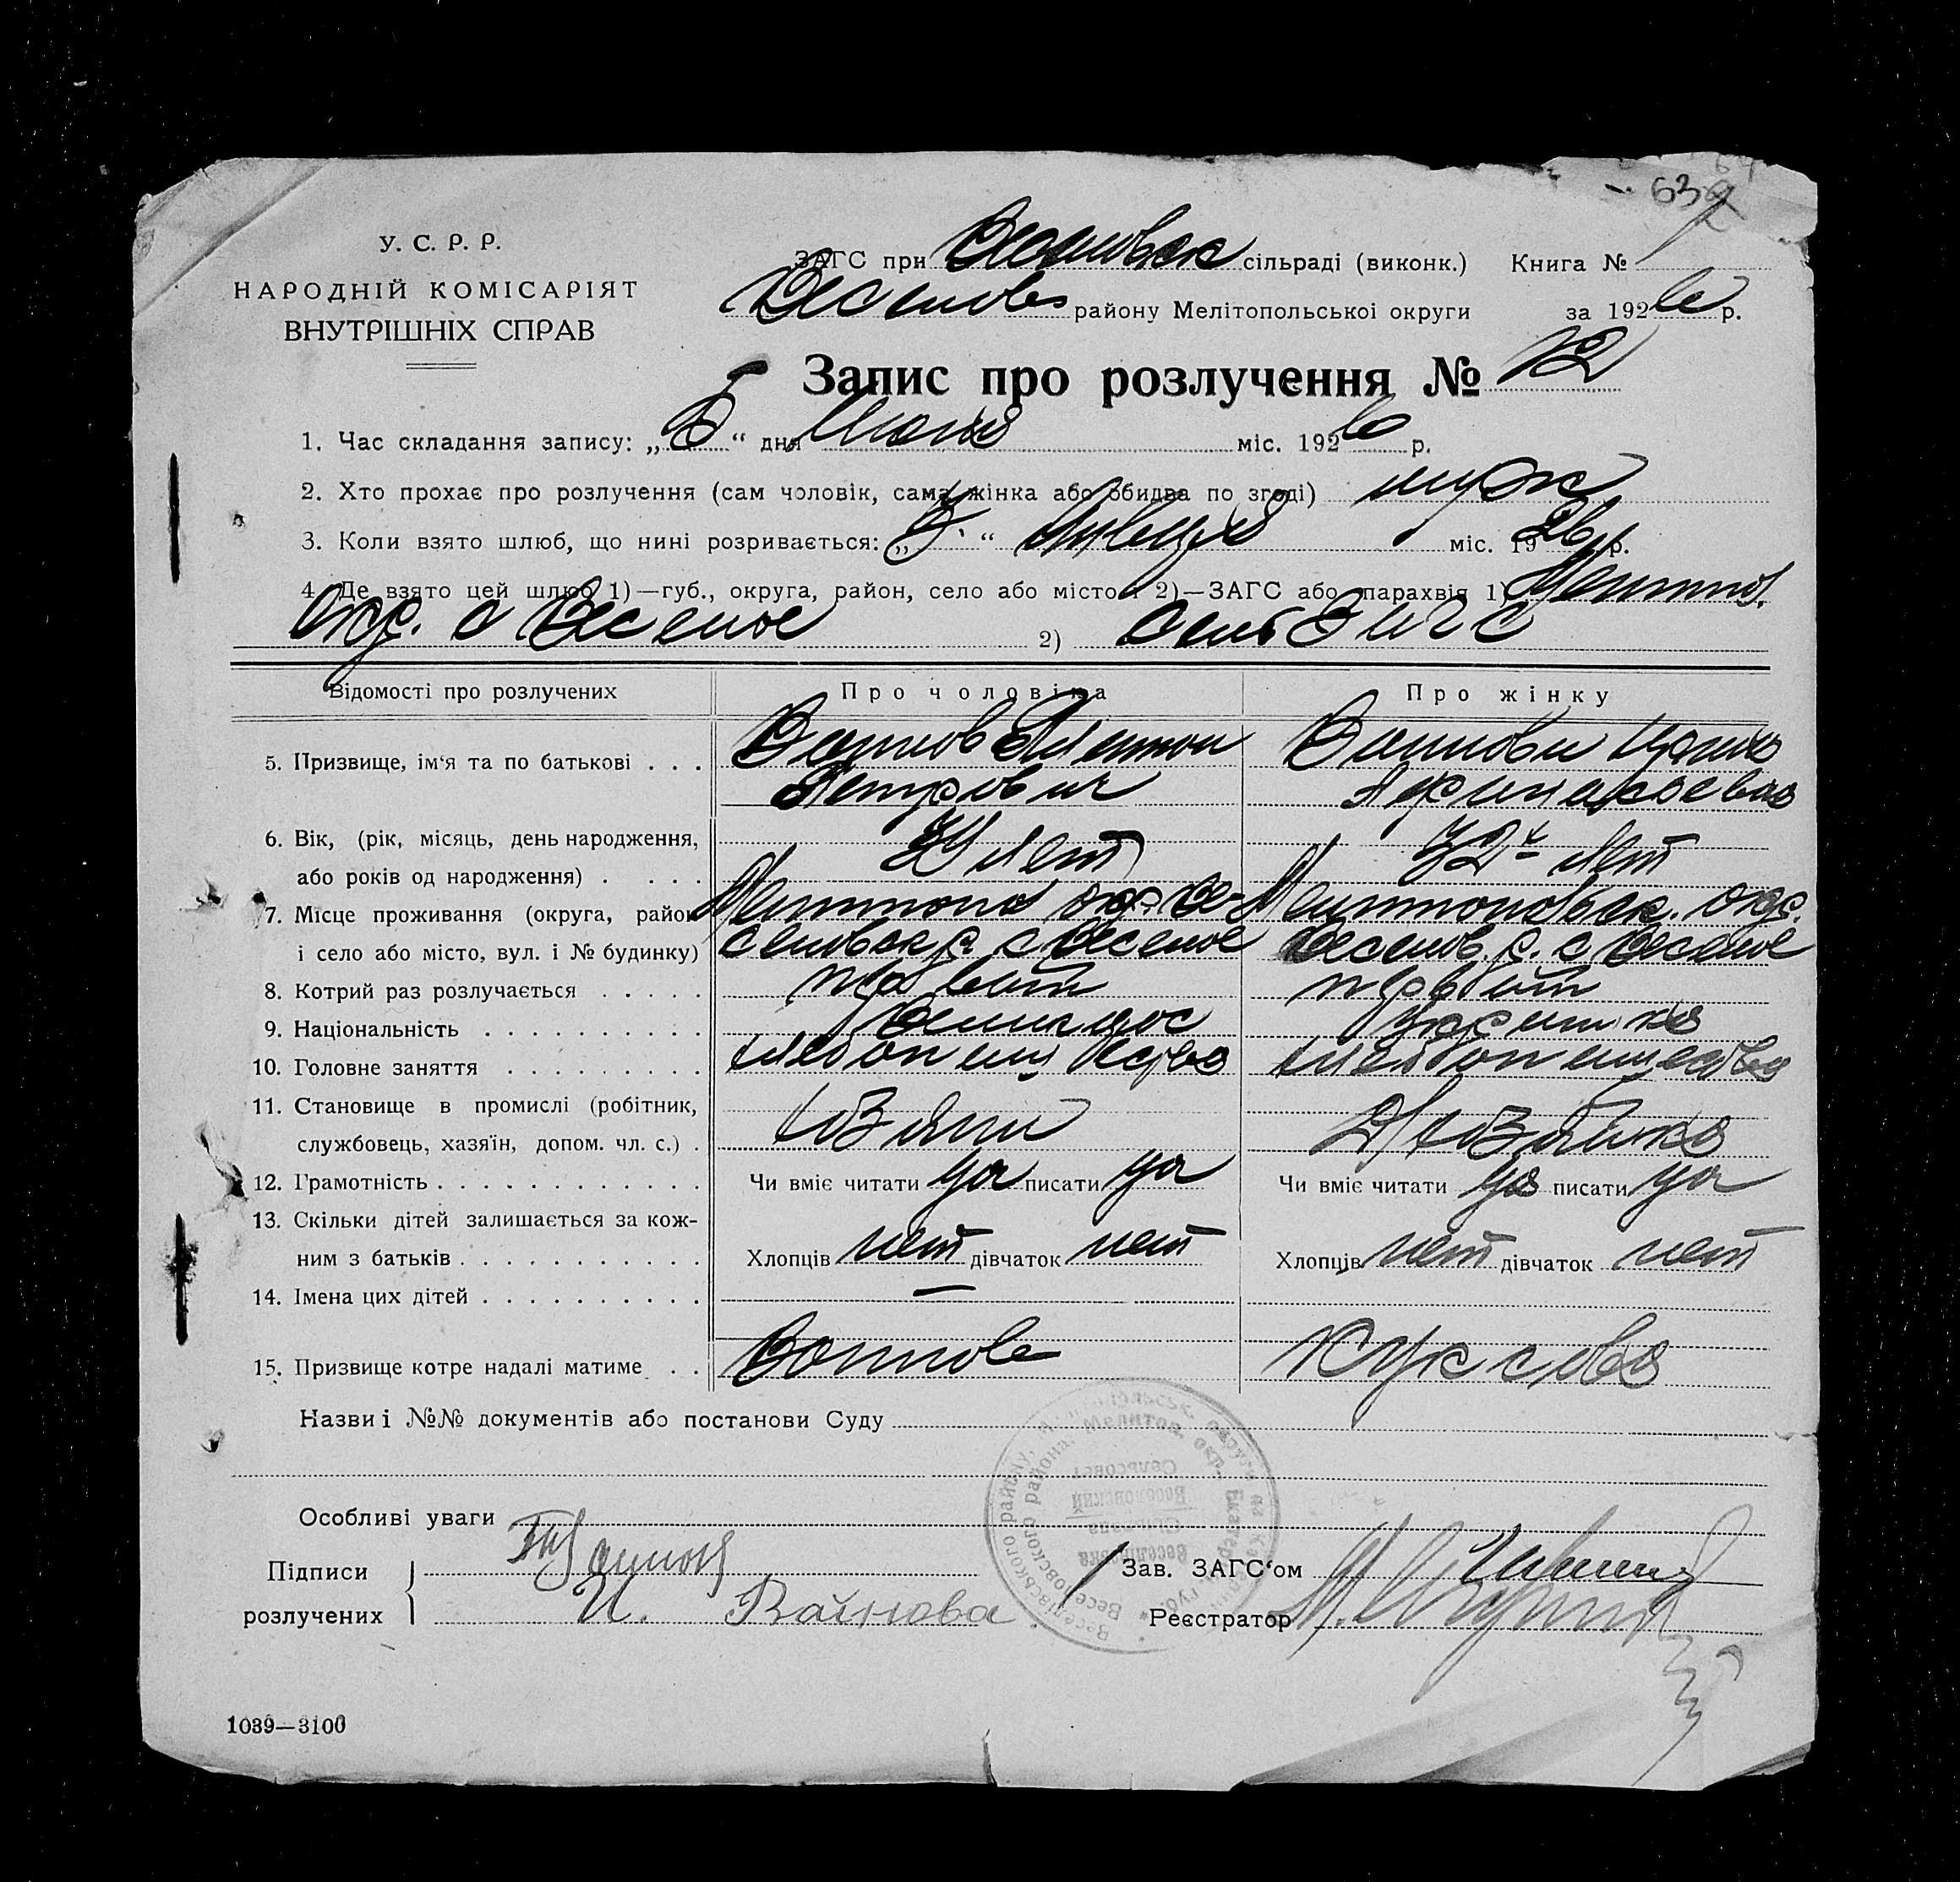 632
У. С. Р. Р.
НАРОДНІЙ КОМІСАРІЯТ
ВНУТРІШНІХ СПРАВ
ЗАГС при Веселовск сільраді (виконк.) Книга №
Веселов району Мелітопольської округи за 1926 р.
Запис про розлучення № 12
1. Час складання запису: „5“ дня Июля міс. 1926 р.
2. Хто прохає про розлучення (сам чоловік, сама жінка або обидва по згоді) муж
3. Коли взято шлюб, що нині розривається: „ “ міс. 1926 р.
4. Де взято цей шлюб 1)—губ., округа, район, село або місто і 2)—ЗАГС або парахвія 1) Мелитоп.
окр. с Веселое 2) сельЗагс
Відомості про розлучених Про чоловіка Про жінку
5. Призвище, ім‘я та по батькові . . . Воинов Воинова
Петрович
6. Вік, (рік, місяць, день народження, лет 32х лет
або років од народження) . . . .
7. Місце проживання (округа, район Мелитопол окр. Ве- Мелитопольск. окр.
і село або місто, вул. і № будинку) селовск р. с Веселое Веселов. р. с Веселое
8. Котрий раз розлучається . . . . . первый первый
9. Національність . . . . . . . . . .
10. Головне заняття . . . . . . . . . хлебопашество хлебопашество
11. Становище в промислі (робітник,
службовець, хазяїн, допом. чл. с.) . хозяин Д/хозяйка
12. Грамотність . . . . . . . . . . . . Чи вміє читати да писати да Чи вміє читати да писати да
13. Скільки дітей залишається за кож-
ним з батьків . . . . . . . . . . . Хлопців нет дівчаток нет Хлопців нет дівчаток нет
14. Імена цих дітей . . . . . . . . . . —
15. Призвище котре надалі матиме . . Воинов Курсова
Назви і №№ документів або постанови Суду
Особливі уваги
Підписи
розлучених И. Воінова
Зав. ЗАГС‘ом
Реєстратор
1039—3100